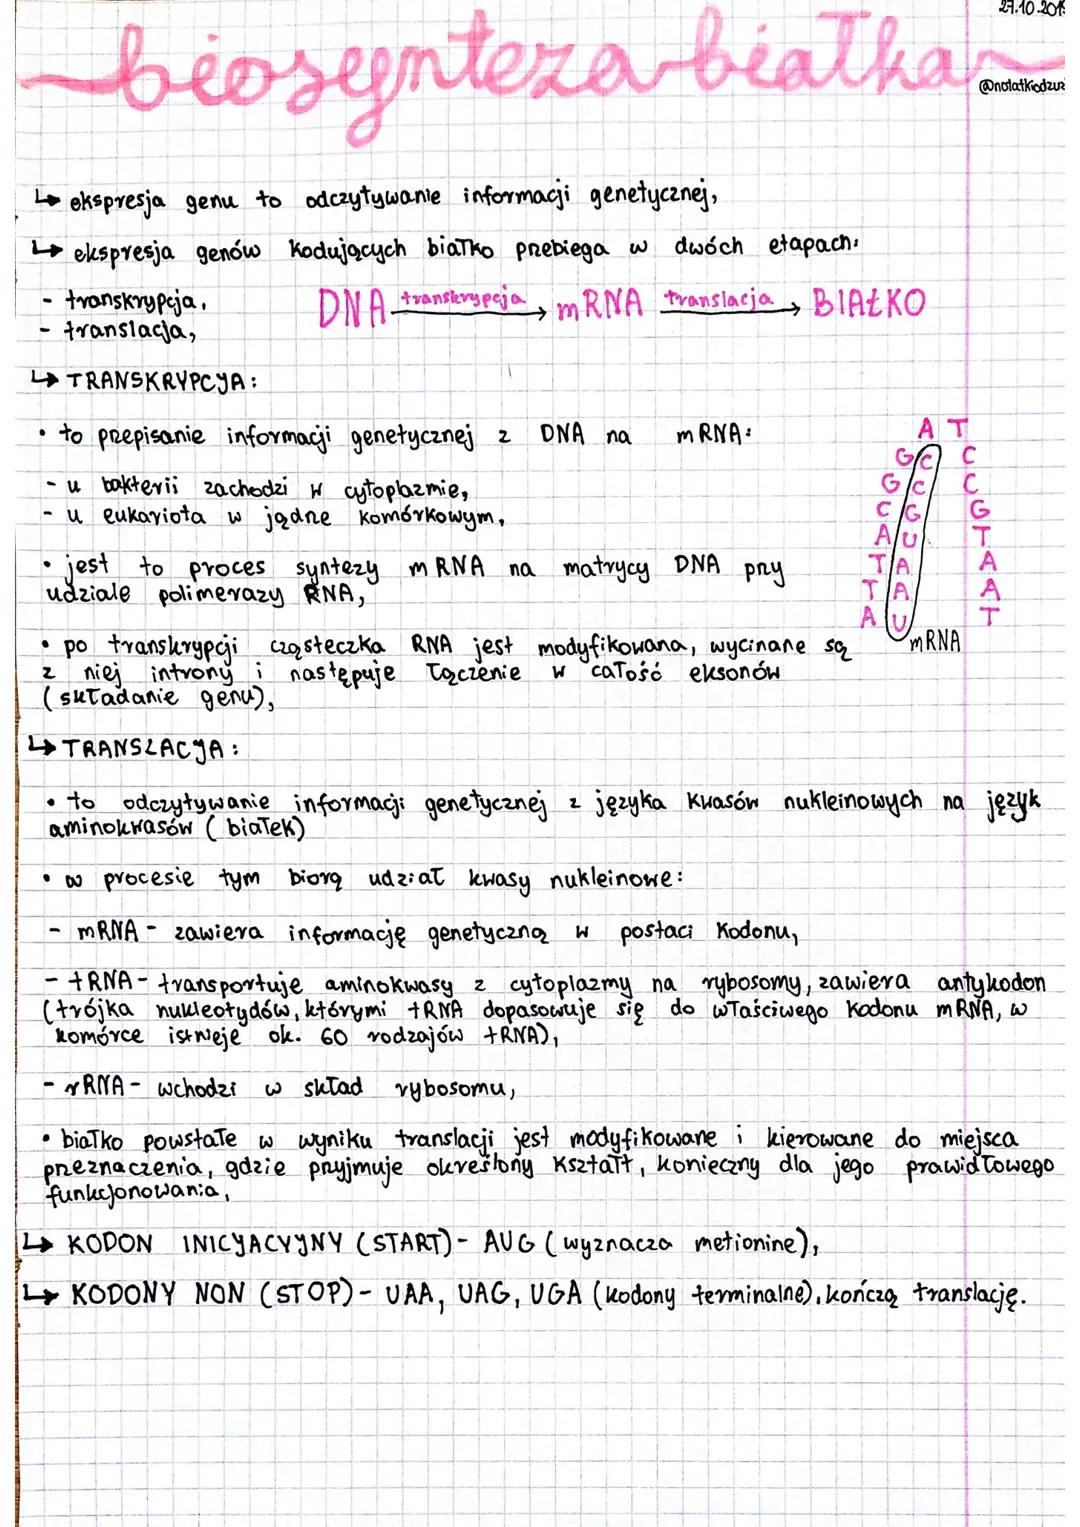 27.10.201
biosynteza białka
@notatkiodzuz
↳ ekspresja genu to odczytywanie informacji genetycznej,
↳ ekspresja genów kodujących białko przebiega w dwóch etapach:
- transkrypcja,
- translacja,
DNA transkrypcja → mRNA translacja → BIAŁKO
↳ TRANSKRYPCJA:
• to przepisanie informacji genetycznej z DNA na mRNA:
- u bakterii zachodzi w cytoplazmie,
- u eukariota w jądrze komórkowym,
• jest to proces syntezy mRNA na matrycy DNA przy
udziale polimerazy RNA,
• po transkrypcji cząsteczka RNA jest modyfikowana, wycinane są
z niej introny i następuje łączenie w całość eksonów
(składanie genu),
A T
G C C
G C C
C G G
A U T
T A A
T A A
A U T
mRNA
↳ TRANSLACJA:
• to odczytywanie informacji genetycznej z języka kwasów nukleinowych na język
aminokwasów (białek)
• w procesie tym biorą udział kwasy nukleinowe:
- mRNA - zawiera informację genetyczną w postaci kodonu,
- tRNA - transportuje aminokwasy z cytoplazmy na rybosomy, zawiera antykodon
(trójka nukleotydów, którymi tRNA dopasowuje się do właściwego kodonu mRNA, w
komórce istnieje ok. 60 rodzajów tRNA),
- rRNA - wchodzi w skład rybosomu,
• białko powstałe w wyniku translacji jest modyfikowane i kierowane do miejsca
przeznaczenia, gdzie przyjmuje określony kształt, konieczny dla jego prawidłowego
funkcjonowania,
↳ KODON INICJACYJNY (START) - AUG (wyznacza metionine),
↳ KODONY NON (STOP) - UAA, UAG, UGA (kodony terminalne), kończą translację.